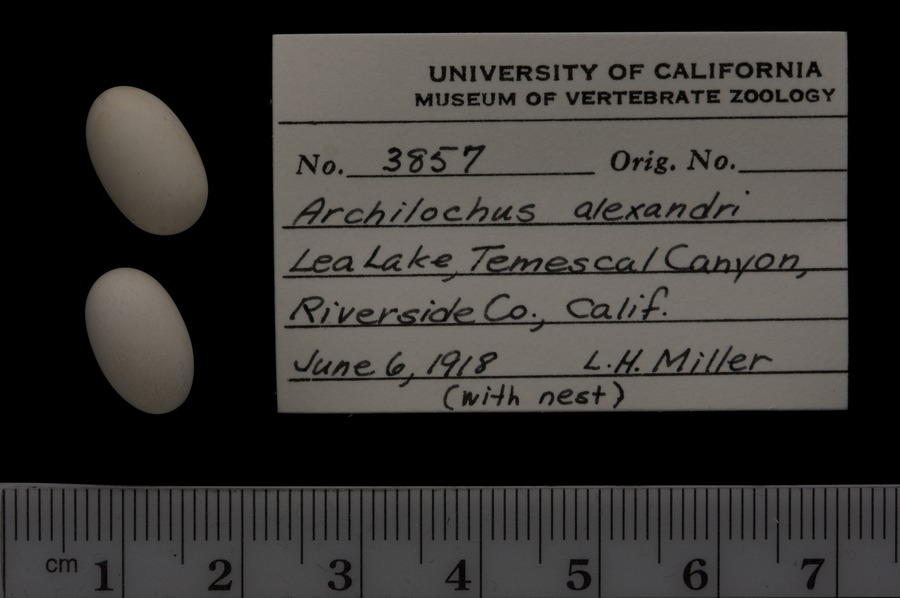 UNIVERSITY OF CALIFORNIA
MUSEUM OF VERTEBRATE ZOOLOGY
No. 3857 Orig. No.
Archilochus alexandri
Lea Lake, Temescal Canyon,
Riverside Co., Calif.
June 6, 1918 L.H. Miller
(with nest)
cm 1 2 3 4 5 6 7